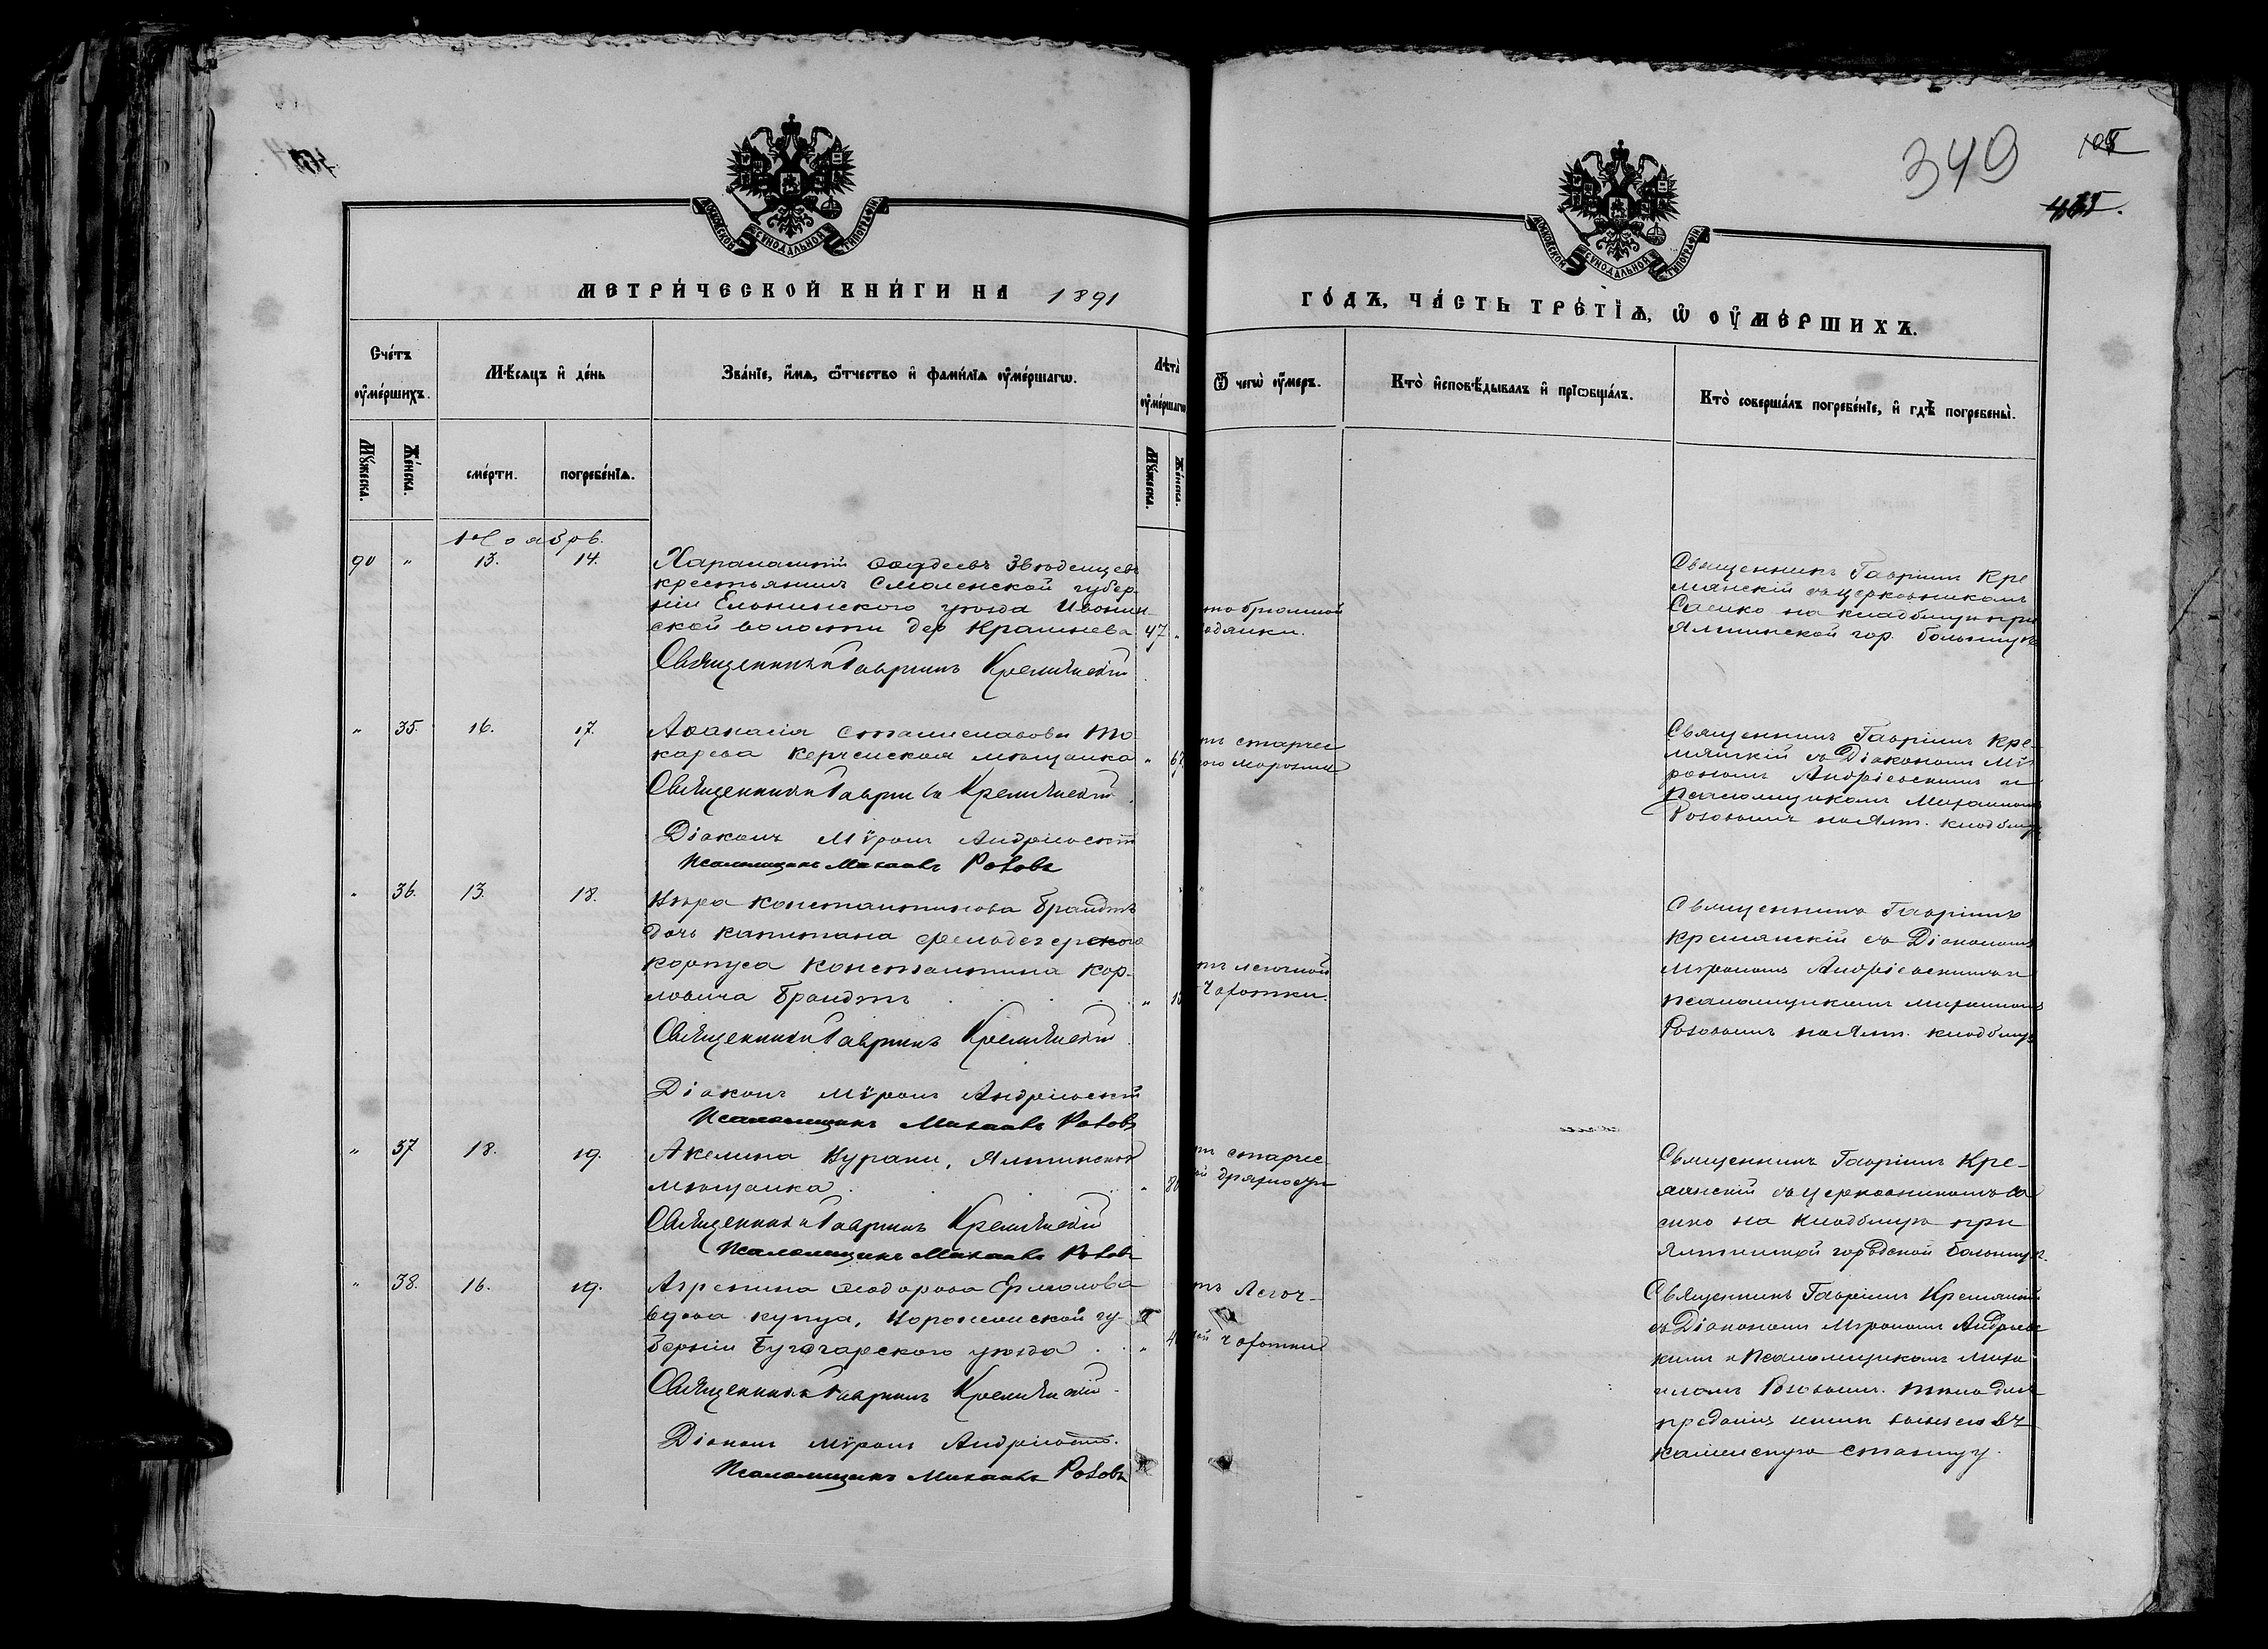 349
105
415.
МОСКОВСКОЙ СѴНОДАЛЬНОЙ ТИПОГРАФІИ
МОСКОВСКОЙ СѴНОДАЛЬНОЙ ТИПОГРАФІИ
МЕТРИ́ЧЕСКОЙ КНИ́ГИ НА 1891
ГО́ДЪ, ЧА́СТЬ ТРЕ́ТІѦ, Ѡ҆ ОУ҆МЕ́РШИХЪ.
Сче́тъ
оу҆ме́ршихъ.
Мѣ́сяцъ и҆ де́нь
Зва́нїе, и҆́мѧ, ѻ҆́тчество и҆ фами́лїа оу҆ме́ршагѡ.
Лѣта̀
оу҆ме́ршагѡ
Ѿ чегѡ̀ оу҆́меръ.
Кто̀ и҆сповѣ́дывалъ и҆ прїѡбща́лъ.
Кто̀ соверша́лъ погребе́нїе, и҆ гдѣ̀ погребены̀.
Му́жеска.
Же́нска.
сме́рти.
погребе́нїѧ.
Му́жеска.
Же́нска.
Ноябрь.
90 " 13. 14.
крестьянинъ Смоленской губер-
ніи Ельнинского уѣзда Ивонин-
ской волости дер Крашнева 47 "
Священникъ Гавріилъ Кремянскій
то брюшной
водянки.
Священникъ Гавріилъ Кре
мянскій съ церковникомъ
Саенко на кладбищѣ при
Ялтинской гор. больницѣ
" 35. 16. 17.
Аѳанасія Станиславова То
карева Керченская мѣщанка " 67.
Священникъ Гавріилъ Кремянскій
Діаконъ Мѵронъ Андріевскій
Псаломщикъ Михаилъ Розовъ
тъ старчес
кого маразма
Священникъ Гавріилъ Кре-
мянскій съ Діакономъ Мѵ
рономъ Андріевскимъ и
Псаломщикомъ Михаиломъ
Розовымъ на Ялт. кладбищѣ
" 36. 13. 18.
Вѣра Константинова Брандтъ
дочь капитана фельдегерского
корпуса Константина Кар-
ловича Брандтъ . . . "
Священникъ Гавріилъ Кремянскій
Діаконъ Мѵронъ Андріевскій
Псаломщикъ Михаилъ Розовъ
тъ легочной
чахотки.
Священникъ Гавріилъ
Кремянскій съ Діакономъ
Мѵрономъ Андріевскимъ и
псаломщикомъ Михаиломъ
Розовымъ на Ялт. кладбищѣ
" 37 18. 19.
Акелина Курани, Ялтинская
мѣщанка . . . "
Священникъ Гавріилъ Кремянскій
Псаломщикъ Михаилъ Розовъ
тъ старчес-
ой дряхлости
Священникъ Гавріилъ Кре-
мянскій съ церковникомъ Са
енко на кладбищѣ при
Ялтинской городской больницѣ.
" 38. 16. 19.
Агрепина Ѳеодорова Ермолова
вдова купца, Воронежской гу-
берніи Бугучарского уѣзда . . "
Священникъ Гавріилъ Кремянскій
Діаконъ Мѵронъ Андріевскій.
Псаломщикъ Михаилъ Розовъ
тъ Легоч-
ной чахотки
Священникъ Гавріилъ Кремянскій
съ Діакономъ Мѵрономъ Андріевс
кимъ и Псаломщикомъ Миха
иломъ Розовымъ. тѣло для
преданія земли вывезено въ
каменскую станицу.